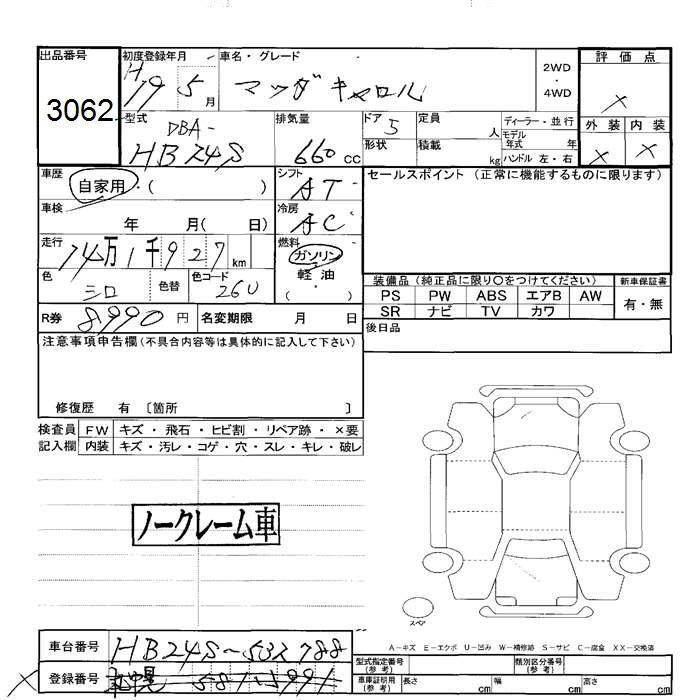 出品番号 初度登録年月 車名・グレード 2WD・4WD 評価点
3062 H19 5月 マツダ キャロル ×
型式 排気量 ドア 定員 人 ディーラー・並行 外装 内装
DBA-HB24S 660cc 5 モデル年式 年 × ×
形状 積載 kg ハンドル 左・右
車歴 自家用・( ) シフト AT セールスポイント (正常に機能するものに限ります)
車検 年 月( 日) 冷房 AC
走行 14万1千927km 燃料 ガソリン 軽油・( )
色 シロ 色替 色コード 26U
装備品 (純正品に限り〇をつけてください) 新車保証書
PS PW ABS エアB AW 有・無
SR ナビ TV カワ
R券 8,990円 名変期限 月 日 後日品
注意事項申告欄(不具合内容等は具体的に記入して下さい)
修復歴 有 〔箇所 〕
検査員 FW キズ・飛石・ヒビ割・リペア跡・×要
記入欄 内装 キズ・汚レ・コゲ・穴・スレ・キレ・破レ
ノークレーム車
スペア
車台番号 HB24S-532788
A-キズ E-エクボ U-凹み W-補修跡 S-サビ C-腐食 XX-交換済
登録番号
型式指定番号(参考) 類別区分番号(参考)
車庫証明用(参考) 長さ cm 幅 cm 高さ cm